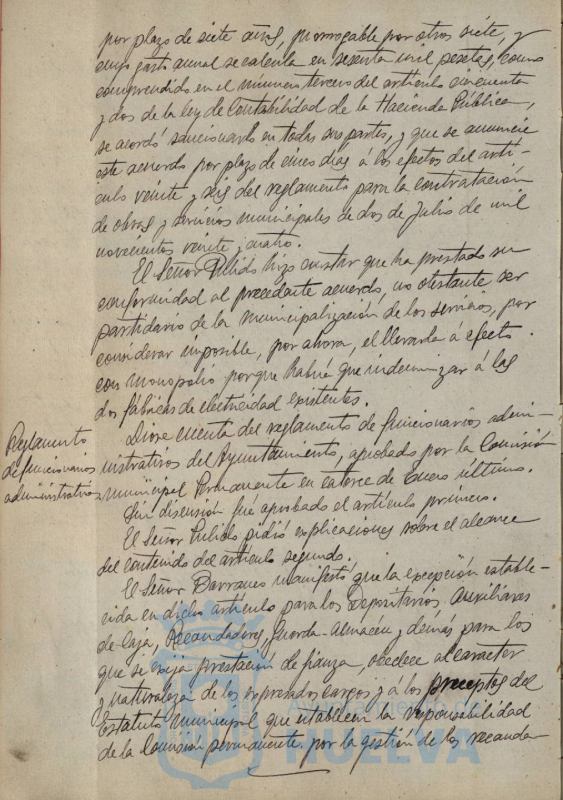 por plazo de siete años, prorrogable por otros siete, y
cuyo gasto anual se calcula en sesenta mil pesetas, como
comprendido en el número tercero del artículo cincuenta
y dos de la Ley de Contabilidad de la Hacienda Pública,
se acordó sancionarlo en todas sus partes, y que se anuncie
este acuerdo por plazo de cinco días á los efectos del artí-
culo veinte y seis del reglamento para la contratación
de obras y servicios municipales de dos de Julio de mil
novecientos veinte y cuatro.
El Señor Pulido hizo constar que ha prestado su
conformidad al precedente acuerdo, no obstante, ser
partidario de la municipalización de los servicios, por
considerar imposible, por ahora, el llevarla á efecto
con monopolio porque habría que indemnizar á las
dos fábricas de electricidad existentes.
Reglamento
de funcionarios
administrativos
Diose cuenta del reglamento de funcionarios admi-
nistrativos del Ayuntamiento, aprobado por la Comisión
municipal Permanente en catorce de Enero último.
Sin discusión fué aprobado el artículo primero.
El Señor Pulido pidió explicaciones sobre el alcance
del contenido del artículo segundo.
El Señor Barranco manifestó que la excepción estable-
cida en dicho artículo para los Depositarios, Auxiliares
de Caja, Recaudadores, Guarda-Almacén y demás para los
que se exija prestación de fianza, obedece al caracter
y naturaleza de los expresados cargos y á los preceptos del
Estatuto Municipal que establecen la responsabilidad
de la Comisión permanente por la gestión de los recauda-
Ayuntamiento de
HUELVA